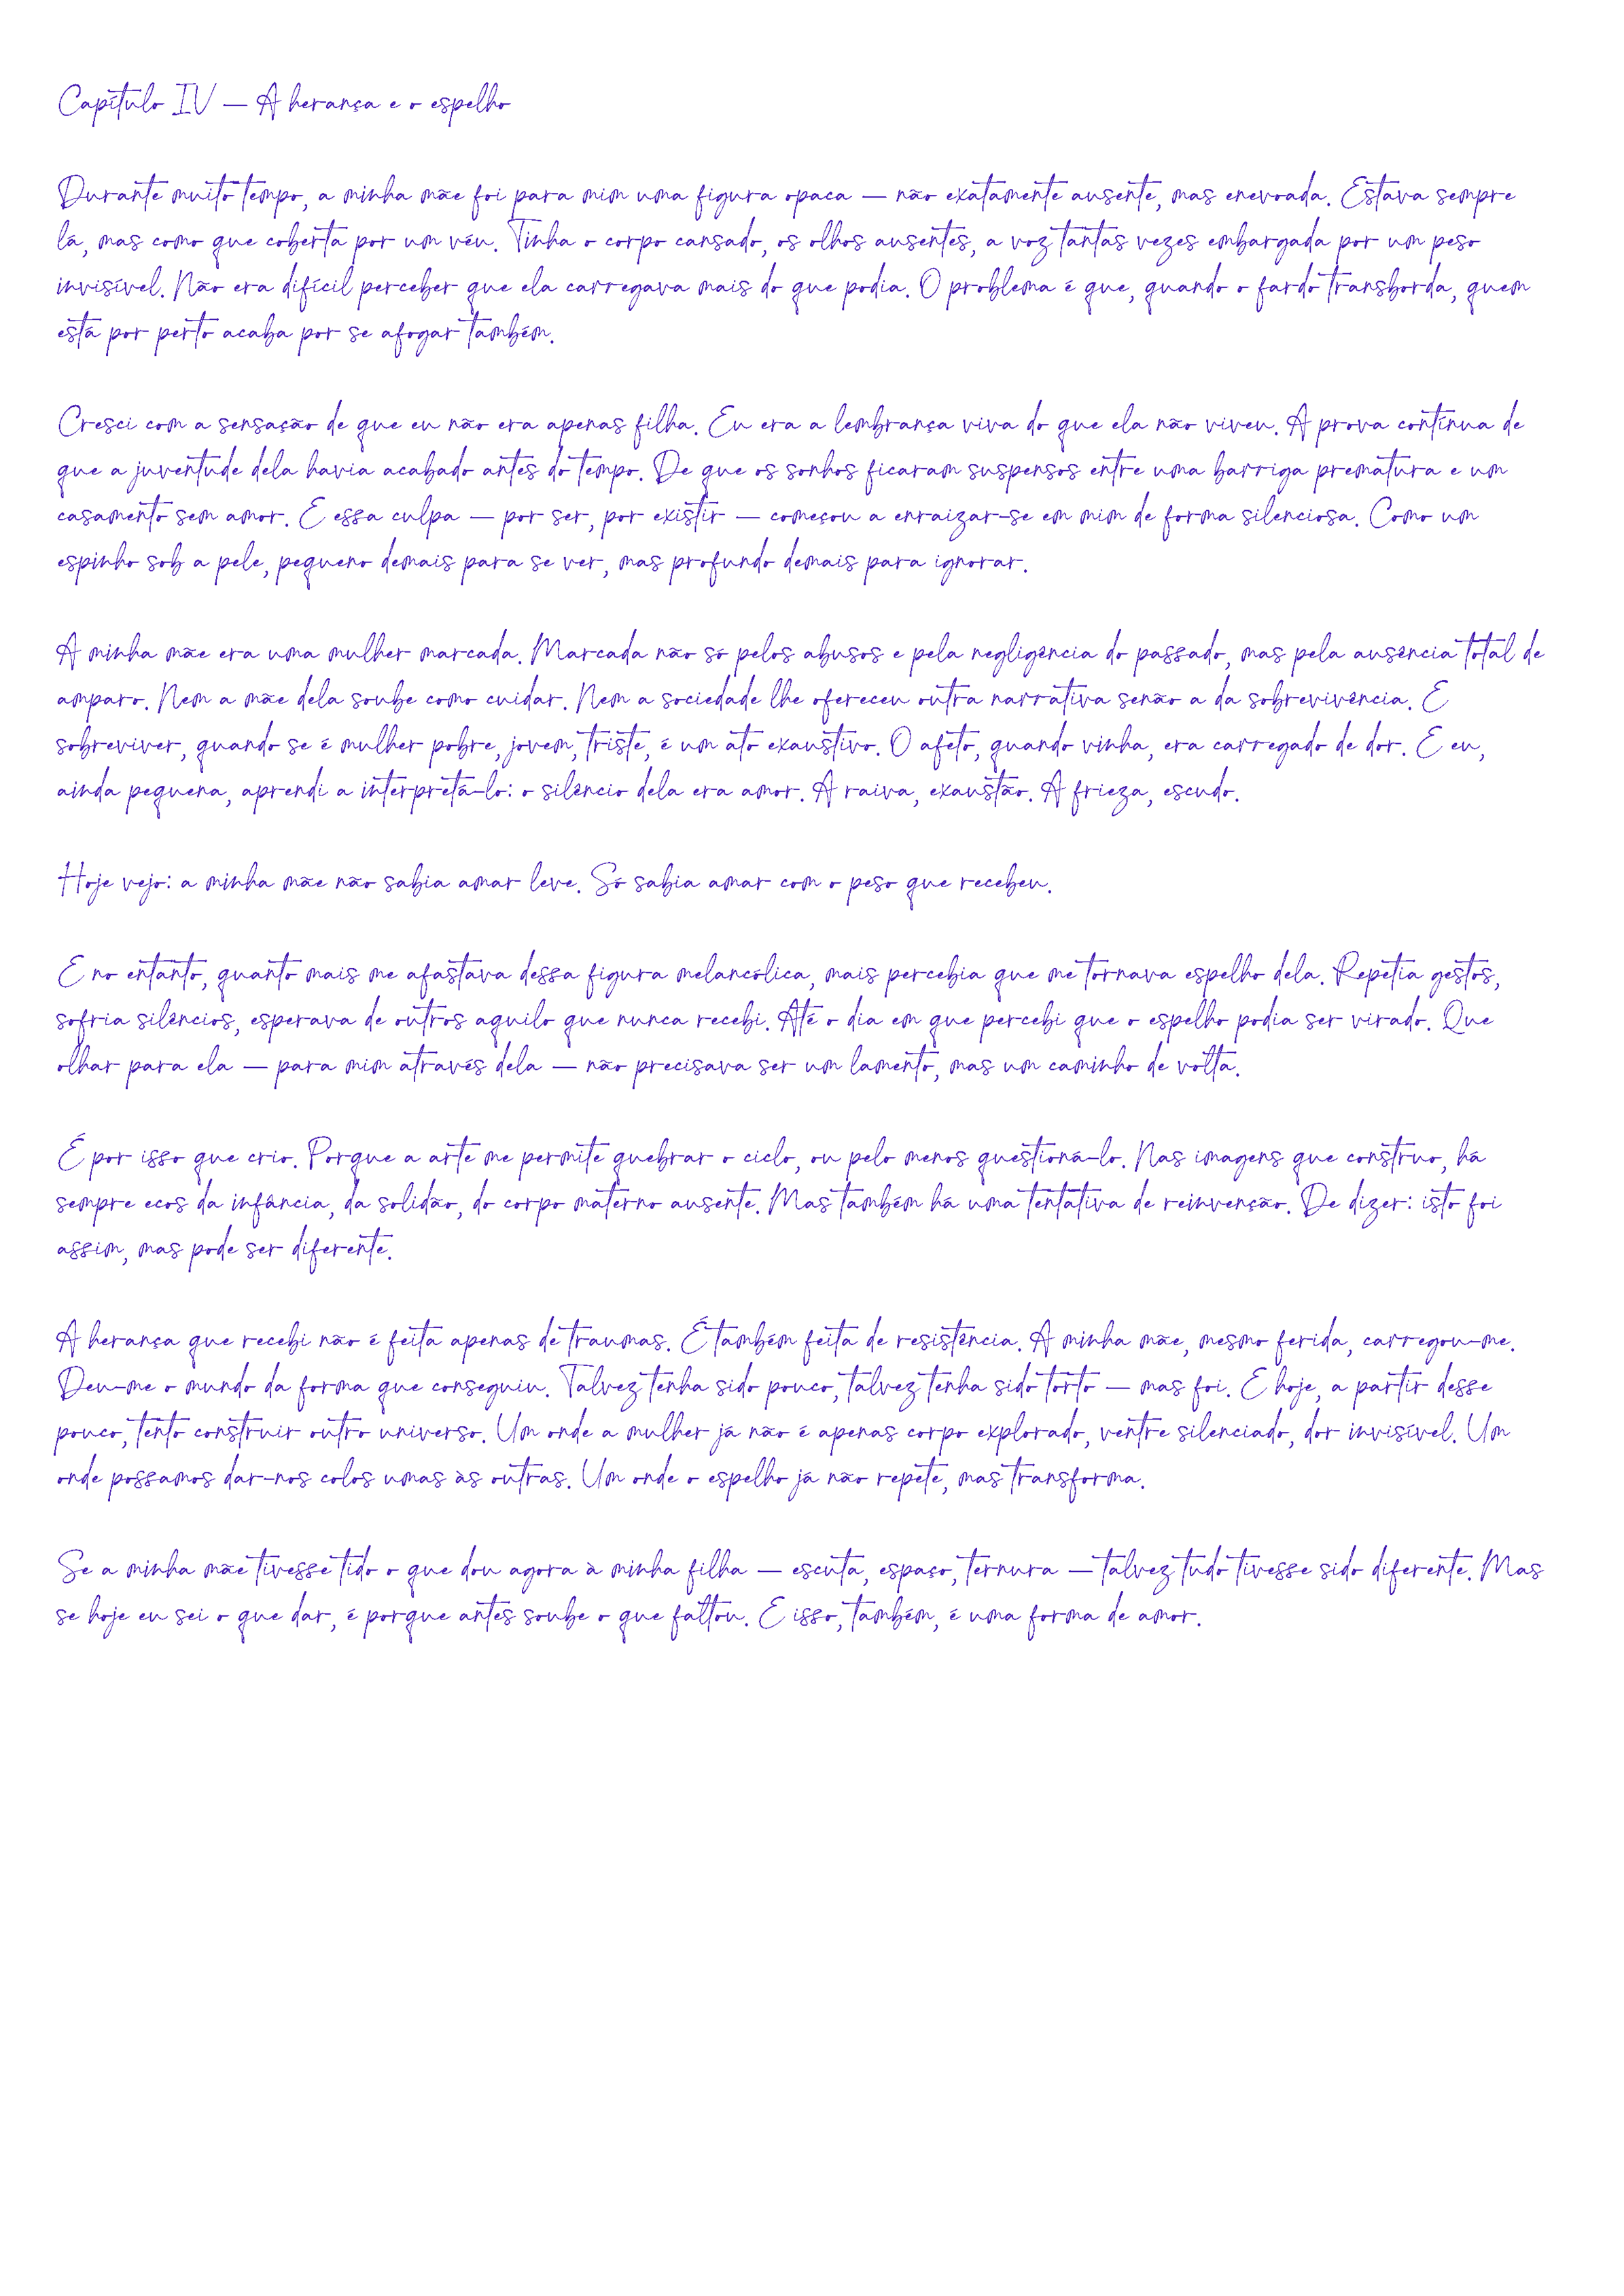 Capítulo IV — A herança e o espelho
Durante muito tempo, a minha mãe foi para mim uma figura opaca — não exatamente ausente, mas enevoada. Estava sempre
lá, mas como que coberta por um véu. Tinha o corpo cansado, os olhos ausentes, a voz tantas vezes embargada por um peso
invisível. Não era difícil perceber que ela carregava mais do que podia. O problema é que, quando o fardo transborda, quem
está por perto acaba por se afogar também.
Cresci com a sensação de que eu não era apenas filha. Eu era a lembrança viva do que ela não viveu. A prova contínua de
que a juventude dela havia acabado antes do tempo. De que os sonhos ficaram suspensos entre uma barriga prematura e um
casamento sem amor. E essa culpa — por ser, por existir — começou a enraizar-se em mim de forma silenciosa. Como um
espinho sob a pele, pequeno demais para se ver, mas profundo demais para ignorar.
A minha mãe era uma mulher marcada. Marcada não só pelos abusos e pela negligência do passado, mas pela ausência total de
amparo. Nem a mãe dela soube como cuidar. Nem a sociedade lhe ofereceu outra narrativa senão a da sobrevivência. E
sobreviver, quando se é mulher pobre, jovem, triste, é um ato exaustivo. O afeto, quando vinha, era carregado de dor. E eu,
ainda pequena, aprendi a interpretá-lo: o silêncio dela era amor. A raiva, exaustão. A frieza, escudo.
Hoje vejo: a minha mãe não sabia amar leve. Só sabia amar com o peso que recebeu.
E no entanto, quanto mais me afastava dessa figura melancólica, mais percebia que me tornava espelho dela. Repetia gestos,
sofria silêncios, esperava de outros aquilo que nunca recebi. Até o dia em que percebi que o espelho podia ser virado. Que
olhar para ela — para mim através dela — não precisava ser um lamento, mas um caminho de volta.
É por isso que crio. Porque a arte me permite quebrar o ciclo, ou pelo menos questioná-lo. Nas imagens que construo, há
sempre ecos da infância, da solidão, do corpo materno ausente. Mas também há uma tentativa de reinvenção. De dizer: isto foi
assim, mas pode ser diferente.
A herança que recebi não é feita apenas de traumas. É também feita de resistência. A minha mãe, mesmo ferida, carregou-me.
Deu-me o mundo da forma que conseguiu. Talvez tenha sido pouco, talvez tenha sido torto — mas foi. E hoje, a partir desse
pouco, tento construir outro universo. Um onde a mulher já não é apenas corpo explorado, ventre silenciado, dor invisível. Um
onde possamos dar-nos colos umas às outras. Um onde o espelho já não repete, mas transforma.
Se a minha mãe tivesse tido o que dou agora à minha filha — escuta, espaço, ternura — talvez tudo tivesse sido diferente. Mas
se hoje eu sei o que dar, é porque antes soube o que faltou. E isso, também, é uma forma de amor.